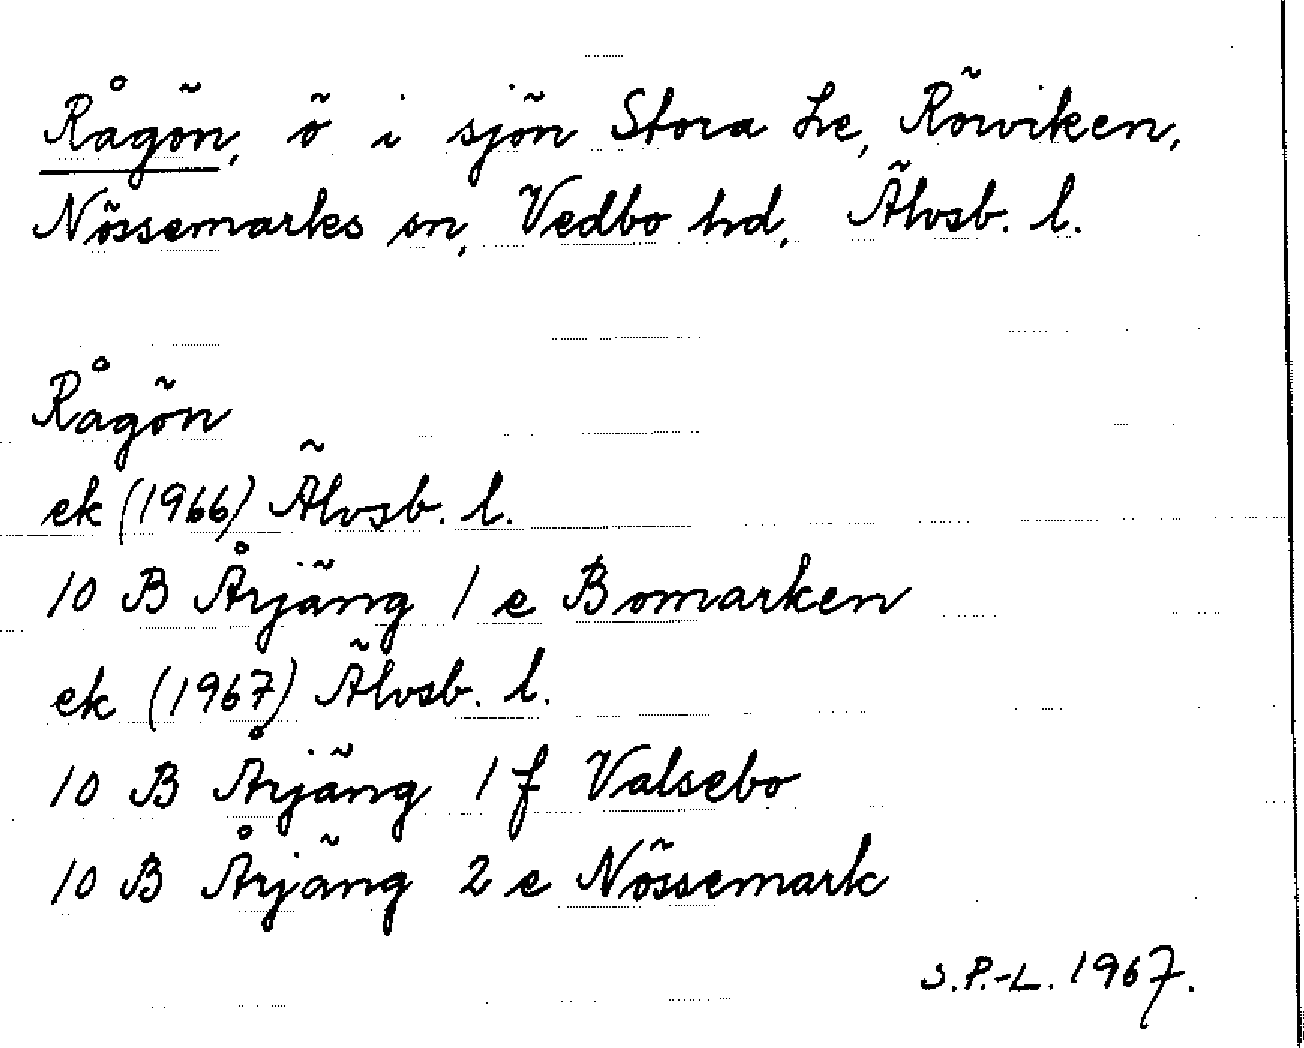 Rågön, ö i sjön Stora Le, Rörviken,
Nössemarks sn, Vedbo hd, Älvsb. l.
Rågön
ek (1966) Älvsb. l.
10 B Årjäng 1 e Bomarken
ek (1967) Älvsb. l.
10 B Årjäng 1 f Valsebo
10 B Årjäng 2 e Nössemark
S.P.-L. 1967.